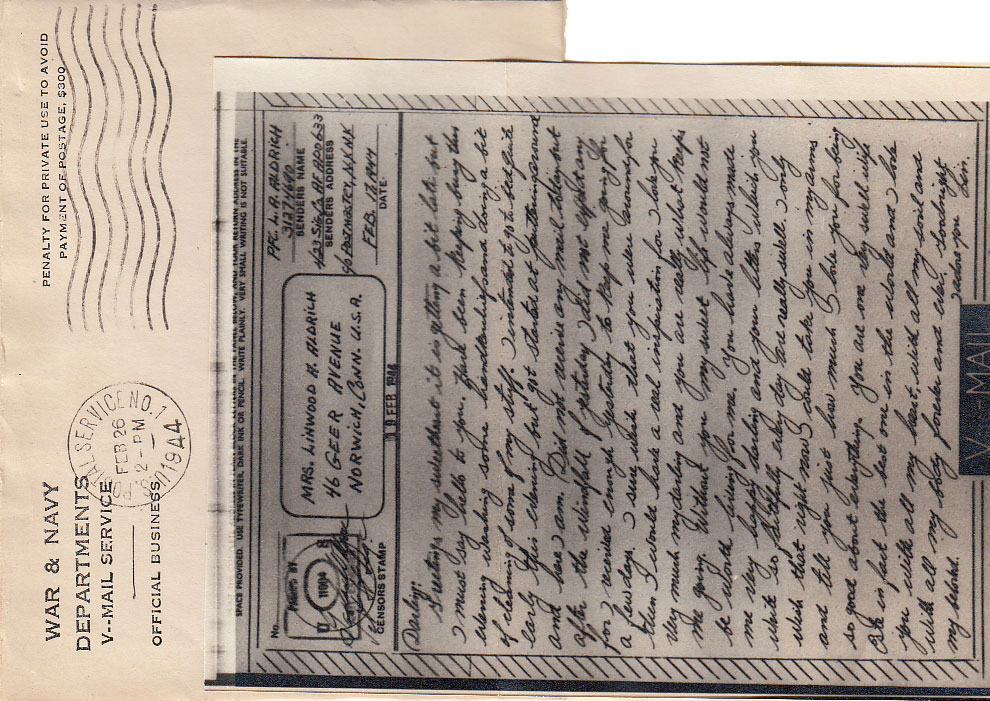 WAR & NAVY
DEPARTMENTS
V--MAIL SERVICE
OFFICIAL BUSINESS
POSTAL SERVICE NO. 1
FEB 26
2-PM
1944
PENALTY FOR PRIVATE USE TO AVOID
PAYMENT OF POSTAGE, $300
SPACE PROVIDED. USE TYPEWRITER, DARK INK OR PENCIL. WRITE PLAINLY. VERY SMALL WRITING IS NOT SUITABLE.
No.
PASSED BY
CENSORS STAMP
MRS. LINWOOD A. ALDRICH
46 GEER AVENUE
NORWICH, CONN. U.S.A.
19 FEB 1944
PFC. L. A. ALDRICH
SENDERS NAME
423 Sig. Co. APO 633
SENDERS ADDRESS
c/o POSTMASTER, N.Y. N.Y.
FEB. 17, 1944
DATE
Darling:
Greetings my sweetheart it is getting a bit late but
I must say hello to you. Have been keeping busy this
evening washing some handkerchiefs and doing a bit
of cleaning of some of my stuff. I intended to go to bed quite
early this evening but got started at puttering around
and here I am. Did not receive any mail today but
after the windfall of yesterday I did not expect any
for I received enough yesterday to keep me going for
a few days. I sure wish that you were around for
then I would have a real inspiration for I love you
very much my darling and you are really what keeps
me going. Without you my sweet life would not
be worth living for me. You have always made
me very happy darling and your letters which you
write so faithfully every day are really swell. I only
wish that right now I could take you in my arms
and tell you just how much I love you for being
so good about everything. You are one very swell wife
in fact the best one in the world and I love
you with all my heart, with all my soul and
with all my body forever and ever. Goodnight
my beloved. I adore you Lin.
V---MAIL